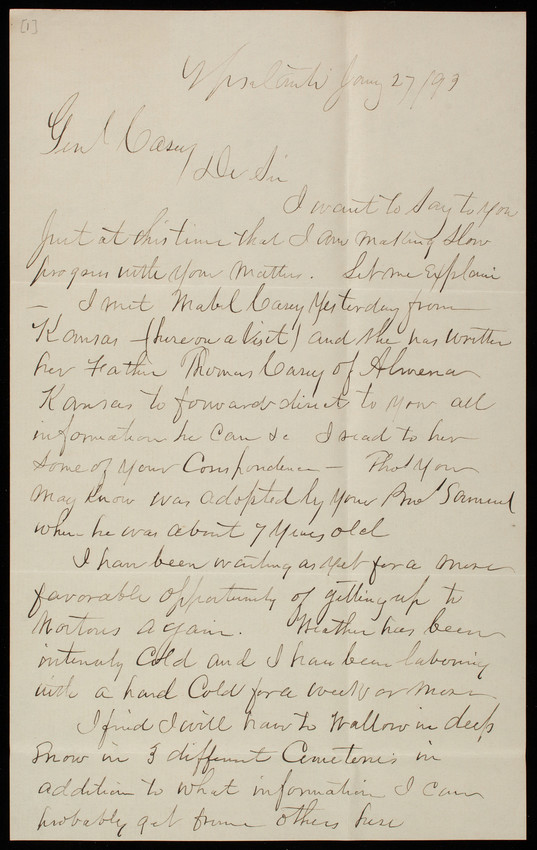 [1]
Ypsilanti Jany 27/93
Genl Casey
Dr Sir
I want to say to you
Just at this time that I am making slow
progress with your matters. Let me Explain
— I met Mabel Casey Yesterday from
Kansas — (here on a Visit) and she has written
her Father Thomas Casey of Almena
Kansas to forward direct to you all
information he can &c I read to her
some of your Correspondence — Thos You
may know was adopted by your Bro Samuel
when he was about 7 years old
I have been waiting as yet for a more
favorable opportunity of getting up to
Nortons again. Weather has been
intensely Cold and I have been laboring
with a hard Cold for a week or more
I find I will have to Wallow in deep
snow in 3 different Cemeteries in
addition to what information I can
probably get from others here